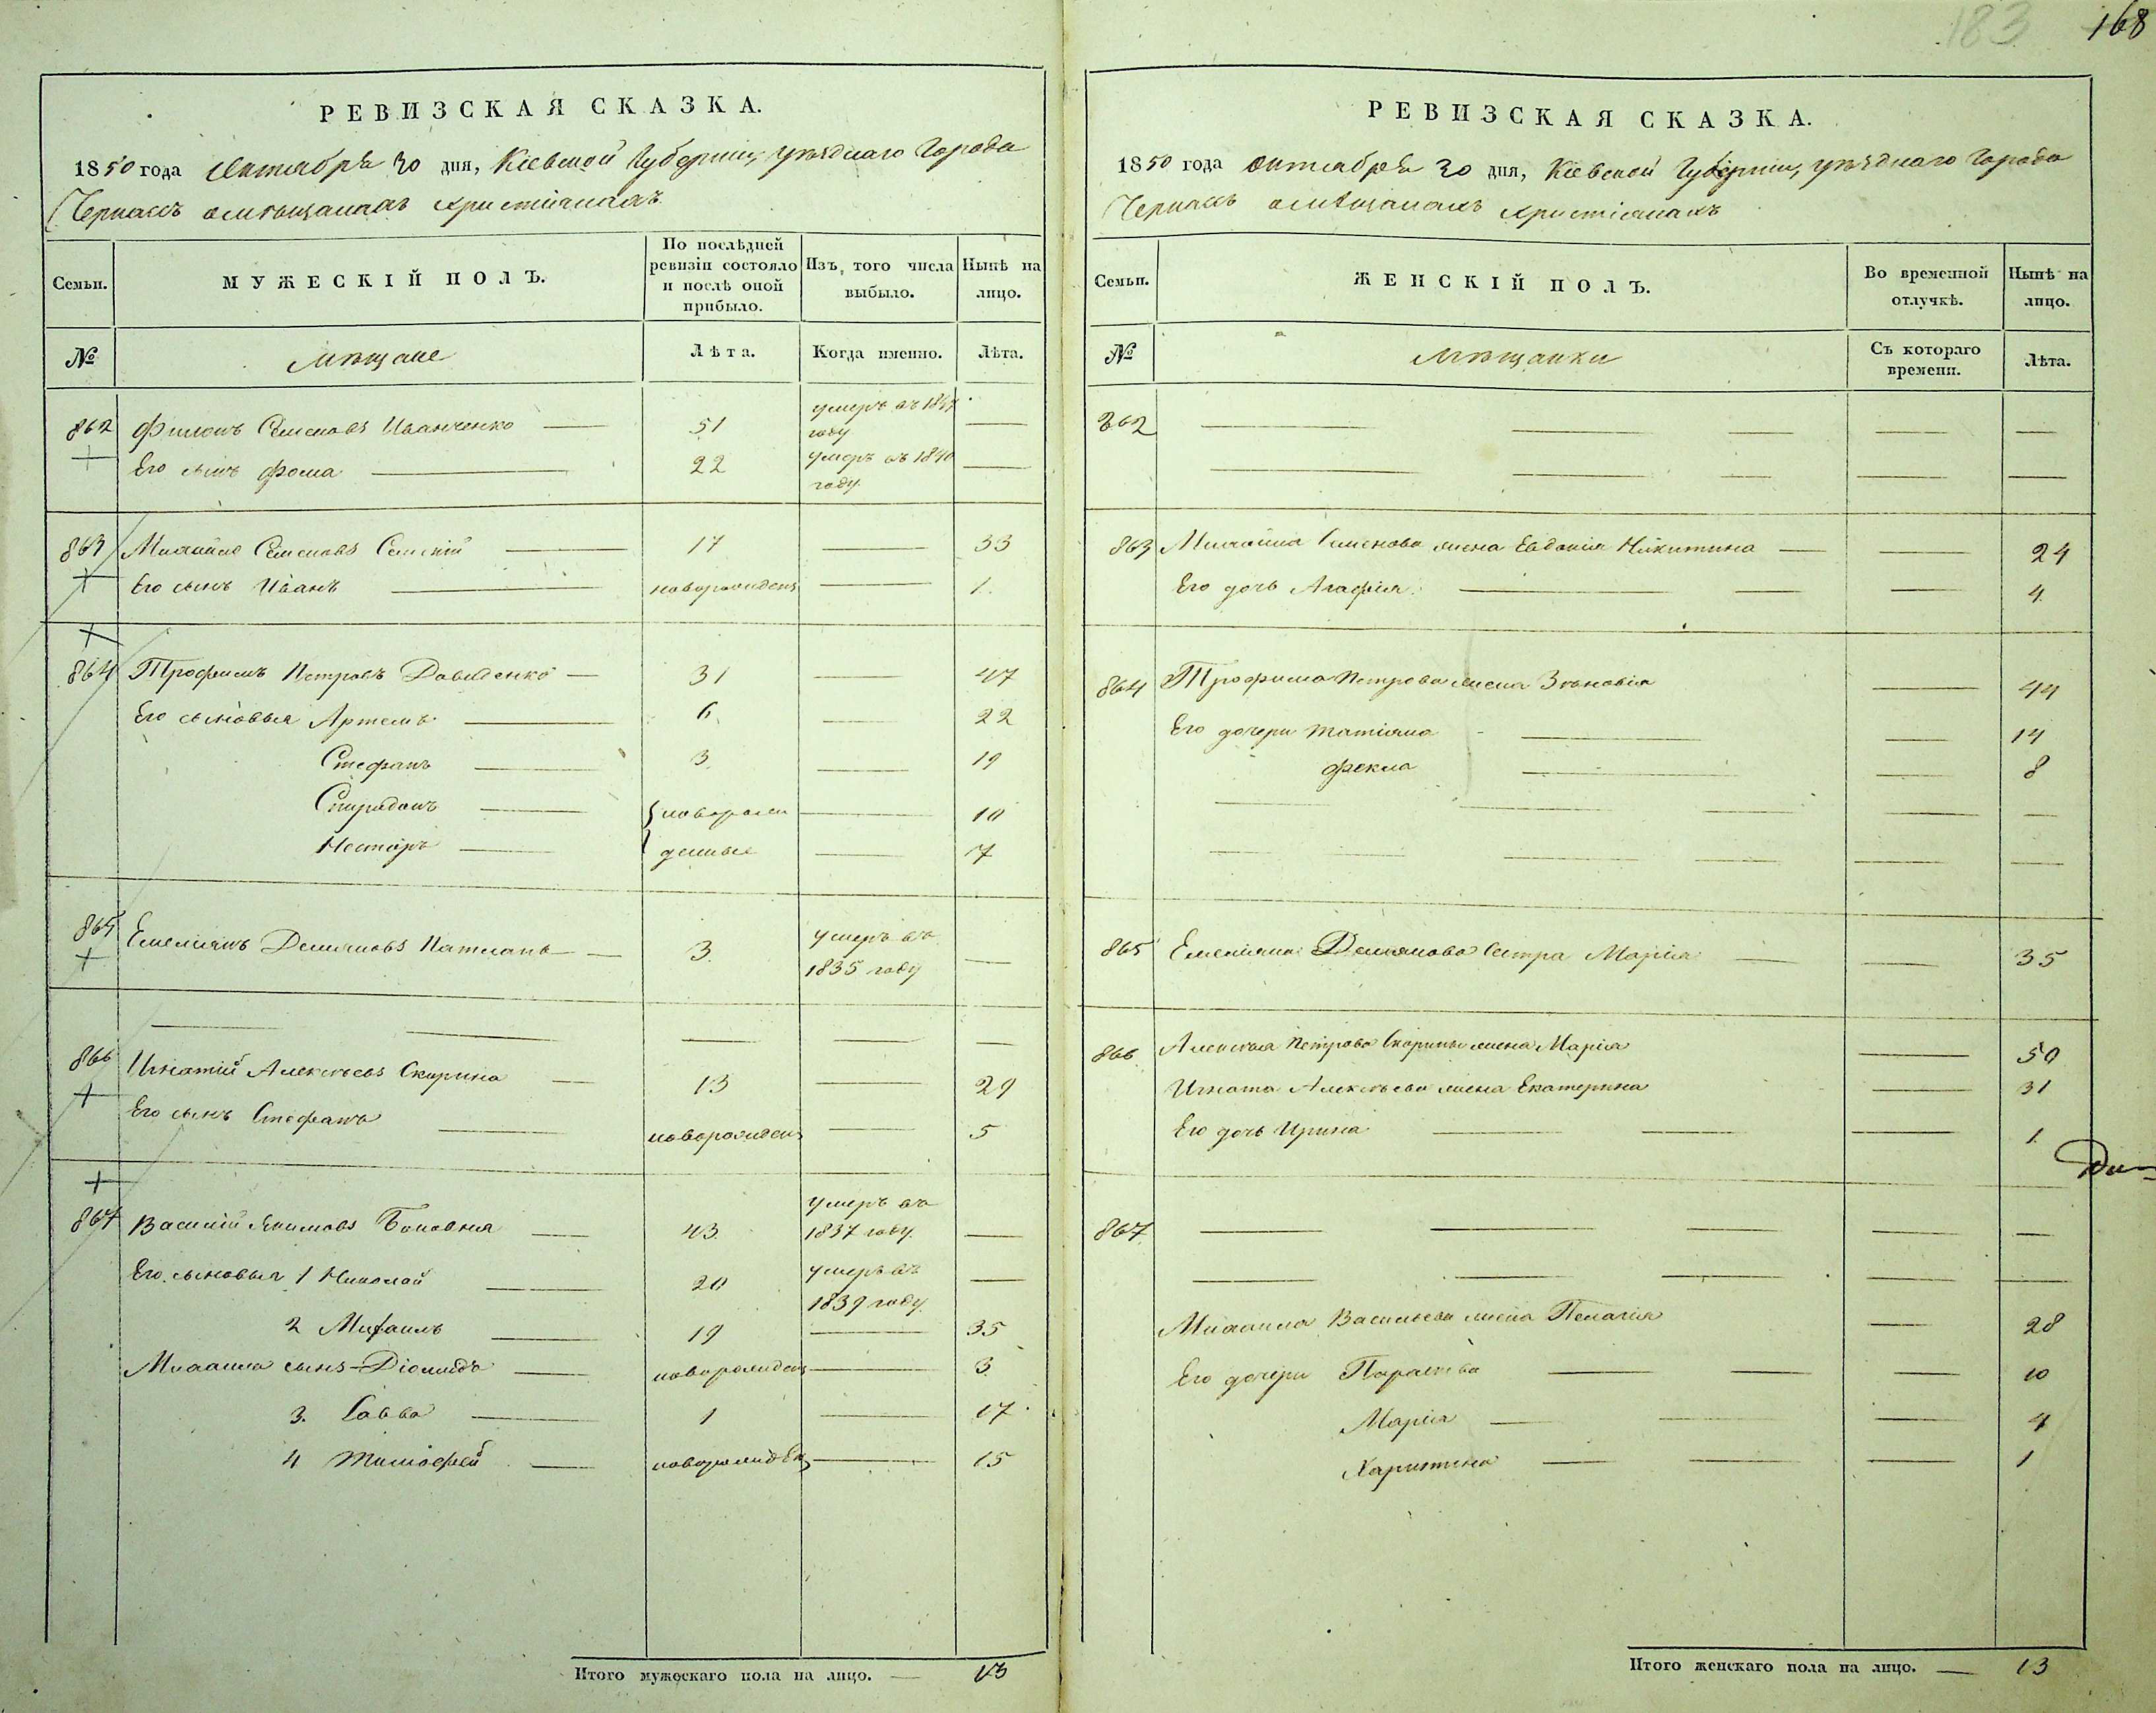 183 168
РЕВИЗСКАЯ СКАЗКА.
1850 года Октября 30 дня, Кіевской Губерніи, уѣзднаго Города
Черкасъ о мѣщанахъ христіанахъ
Семьи.
МУЖЕСКІЙ ПОЛЪ.
По послѣдней ревизіи состояло и послѣ оной прибыло.
Изъ того числа выбыло.
Нынѣ на лицо.
№
Мѣщане
Лѣта.
Когда именно.
Лѣта.
862 Филонъ Семеновъ Иванченко — 51 умеръ въ 1847 году —
Его сынъ Фома — 22 умеръ въ 1840 году —
863 Михайло Семеновъ Сенскій — 17 — 33
Его сынъ Иванъ — новорожденъ — 1.
864 Трофимъ Петровъ Давиденко — 31 — 47
Его сыновья Артемъ — 6 — 22
Стефанъ — 3 — 19
Спиридонъ — { новорож — 10
Несторъ — { денные — 7
865 Емелиянъ Демяновъ Патлань — 3 умеръ въ 1835 году —
— — — — —
866 Игнатій Алексѣевъ Скорина — 13 — 29
Его сынъ Стефанъ — новорожденъ — 5
867 Василій Якимовъ Боковня — 43 умеръ въ 1837 году —
Его сыновья 1 Николай — 20 умеръ въ 1839 году —
2 Михаилъ — 19 — 35
Михаила сынъ Діомидъ — новорожденъ — 3
3. Савва — 1 — 17
4 Тимофей — новорожденъ — 15
Итого мужескаго пола на лицо. — 13
РЕВИЗСКАЯ СКАЗКА.
1850 года Октября 30 дня, Кіевской Губерніи, уѣзднаго Города
Черкасъ о мѣщанахъ христіанахъ
Семьи.
ЖЕНСКІЙ ПОЛЪ.
Во временной отлучкѣ.
Нынѣ на лицо.
№
Мѣщанки
Съ котораго времени.
Лѣта.
862 — — — — —
— — — — —
863 Михайла Семенова жена Евдокія Никитина — — 24
Его дочь Агафія — — — 4
864 Трофима Петрова жена Зѣновія — 44
Его дочери Татіяна — — 14
Фекла — — 8
— — — — —
— — — — — —
865 Емелияна Демянова сестра Марія — — 35
866 Алексѣя Петрова Скорины жена Марія — 50
Игната Алексѣева жена Екатерина — 31
Его дочь Ирина — — — 1.
867 — — — — —
— — — — —
Михаила Васильева жена Пелагія — 28
Его дочери Параскева — — — 10
Марія — — — 4
Харитина — — — 1
Итого женскаго пола на лицо. — 13